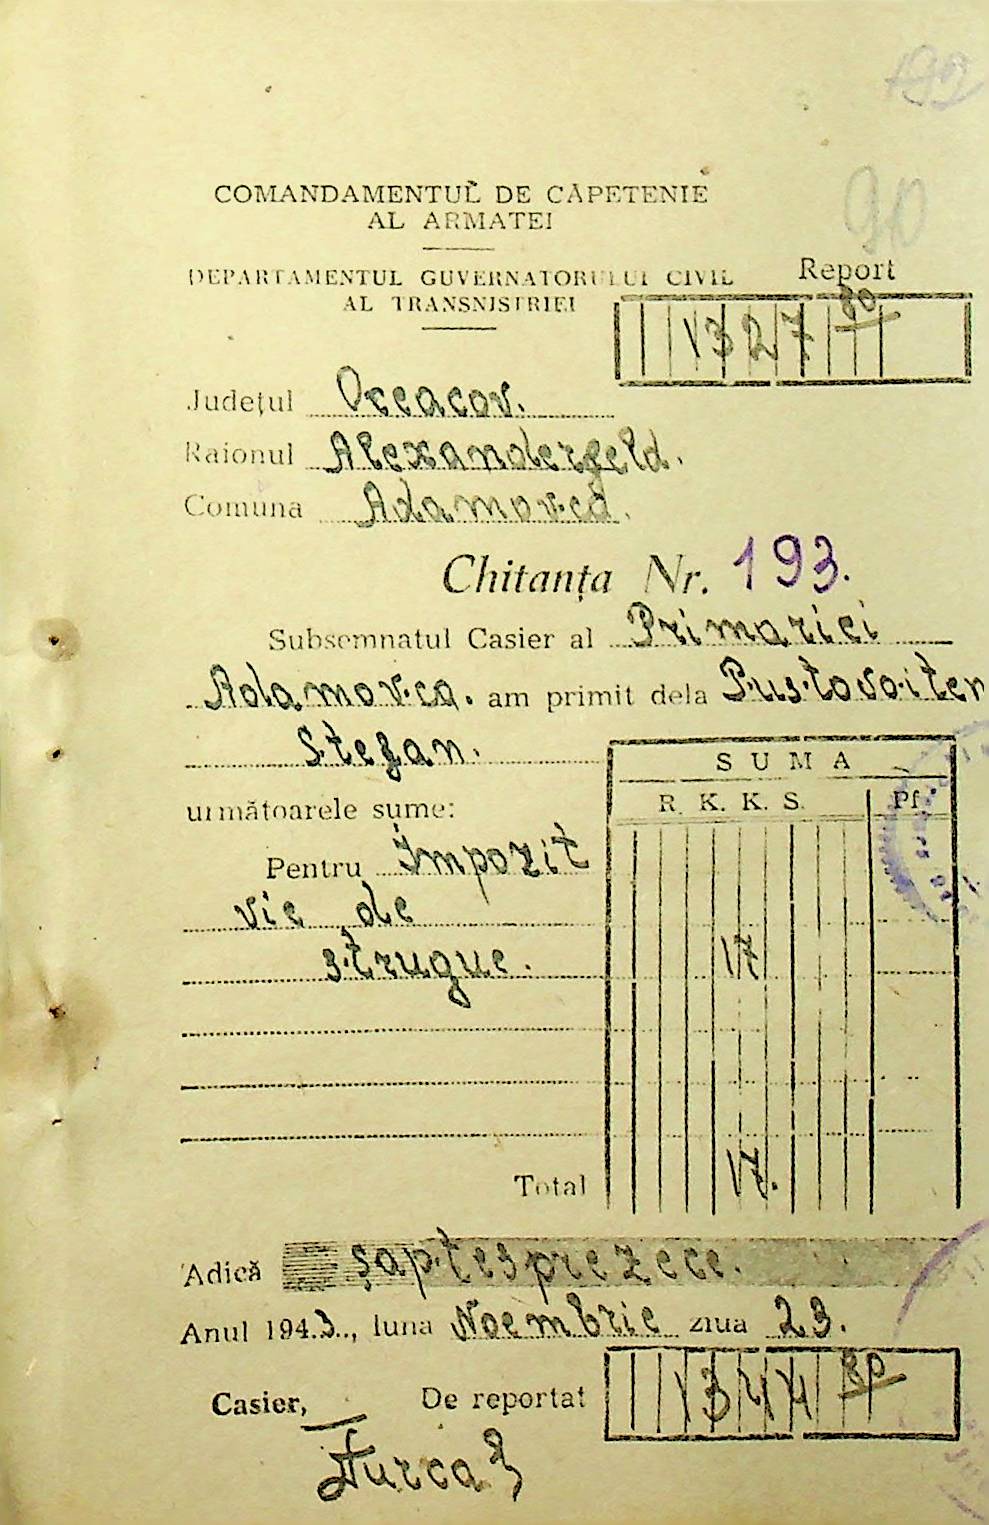 192
COMANDAMENTUL DE CĂPETENIE
AL ARMATEI
90
DEPARTAMENTUL GUVERNATORULUI CIVIL
AL TRANSNISTRIEI
Report
1327 80
Județul Oceacov.
Raionul Alexanderfeld.
Comuna Adamovca.
Chitanța Nr. 193.
Subsemnatul Casier al Primariei
Adamovca. am primit dela Pustovoiten
Stefan.
următoarele sume:
SUMA
R. K. K. S. Pf.
Pentru Impozit
vie de
strugue. 17
Total 17.
Adică șaptesprezece.
Anul 1943., luna Noembrie ziua 23.
Casier, De reportat 1344 80